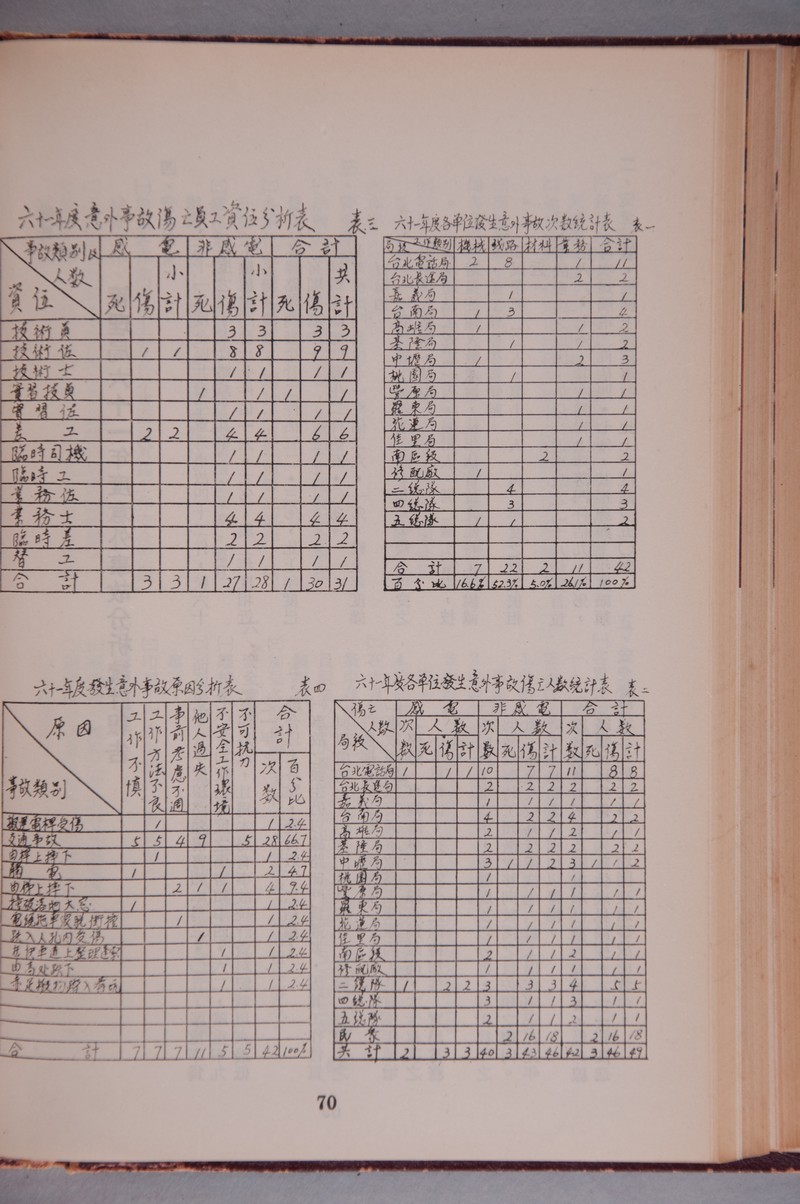 六十一年度意外事故傷亡員工資位分析表 表三
事故類別及人數 感電 非感電 合計
資位 死 傷 小計 死 傷 小計 死 傷 共計
技術員 3 3 3 3
技術佐 1 1 8 8 9 9
技術士 1 1 1 1
實習技員 1 1 1 1
實習佐 1 1 1 1
差工 2 2 4 4 6 6
臨時司機 1 1 1 1
臨時工 1 1 1 1
業務佐 1 1 1 1
業務士 4 4 4 4
臨時差 2 2 2 2
替工 1 1 1 1
合計 3 3 1 27 28 1 30 31
六十一年度各單位發生意外事故次數統計表 表一
局段 工作類別 機械 線路 材料 業務 合計
台北電話局 2 8 1 11
台北長途局 2 2
嘉義局 1 1
台南局 1 3 4
高雄局 1 1 2
基隆局 1 1 2
中壢局 1 2 3
桃園局 1 1
豐原局 1 1
羅東局 1 1
花蓮局 1 1
佳里局 1 1
南區段 2 2
修配廠 1 1
二總隊 4 4
四總隊 3 3
五總隊 1 1 2
合計 7 22 2 11 42
百分比 16.6% 52.3% 5.0% 26.1% 100%
六十一年度發生意外事故原因分析表 表四
原因 工作不慎 工作方法不良 事前考慮不週 他人過失 不安全工作環境 不可抗力 合計
事故類別 次數 百分比
搬運電桿受傷 1 1 2.4
交通事故 5 5 4 9 5 28 66.7
自桿上摔下 1 1 2.4
觸電 1 1 2 4.7
由梯上摔下 2 1 1 4 9.4
1 1 2.4
1 1 2.4
1 1 2.4
1 1 2.4
由高處跌下 1 1 2.4
1 1 2.4
合計 7 7 7 11 5 5 42 100%
六十一年度各單位發生意外事故傷亡人數統計表 表二
傷亡人數 感電 非感電 合計
局段 次數 人數 次數 人數 次數 人數
死 傷 計 死 傷 計 死 傷 計
台北電話局 1 1 1 10 7 7 11 8 8
台北長途局 2 2 2 2 2 2
嘉義局 1 1 1 1 1 1
台南局 4 2 2 4 2 2
高雄局 2 1 1 2 1 1
基隆局 2 2 2 2 2 2
中壢局 3 1 1 2 3 1 1 2
桃園局 1 1
豐原局 1 1 1 1 1 1
羅東局 1 1 1 1 1 1
花蓮局 1 1 1 1 1 1
佳里局 1 1 1 1 1 1
南區段 2 1 1 2 1 1
修配廠 1 1 1 1 1 1
二總隊 1 2 2 3 3 3 4 5 5
四總隊 3 1 1 3 1 1
五總隊 2 1 1 2 1 1
民眾 2 16 18 2 16 18
共計 2 3 3 40 3 43 46 42 3 46 49
70